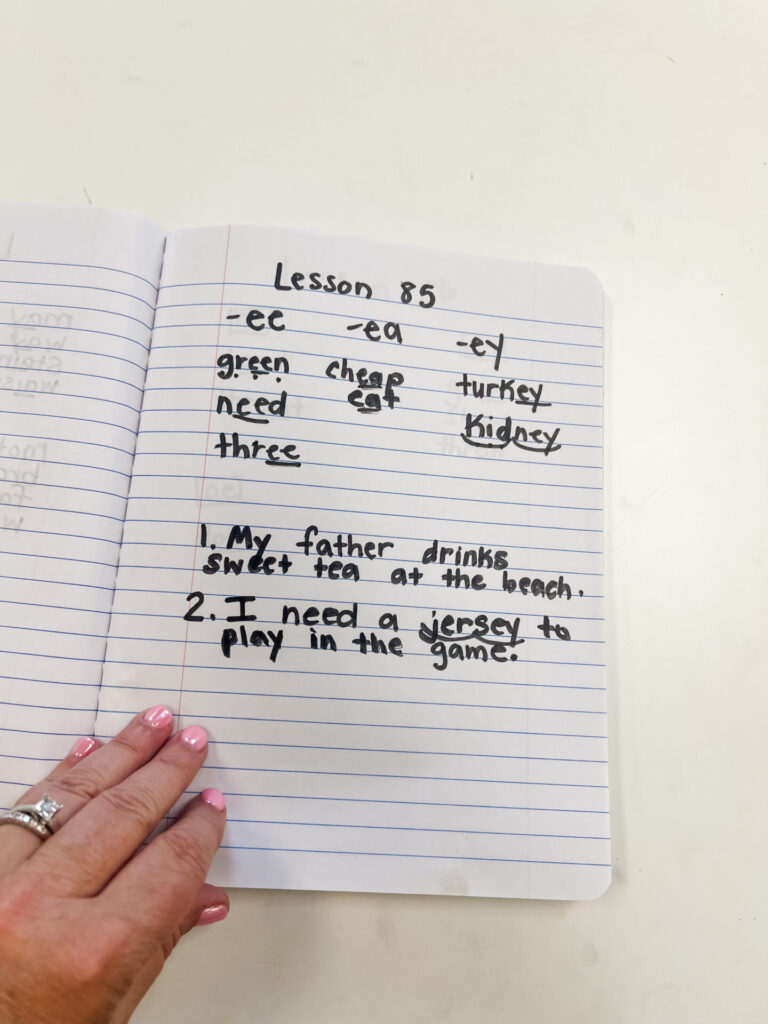 Lesson 85
-ee -ea -ey
green cheap turkey
need eat kidney
three
1. My father drinks
sweet tea at the beach.
2. I need a jersey to
play in the game.